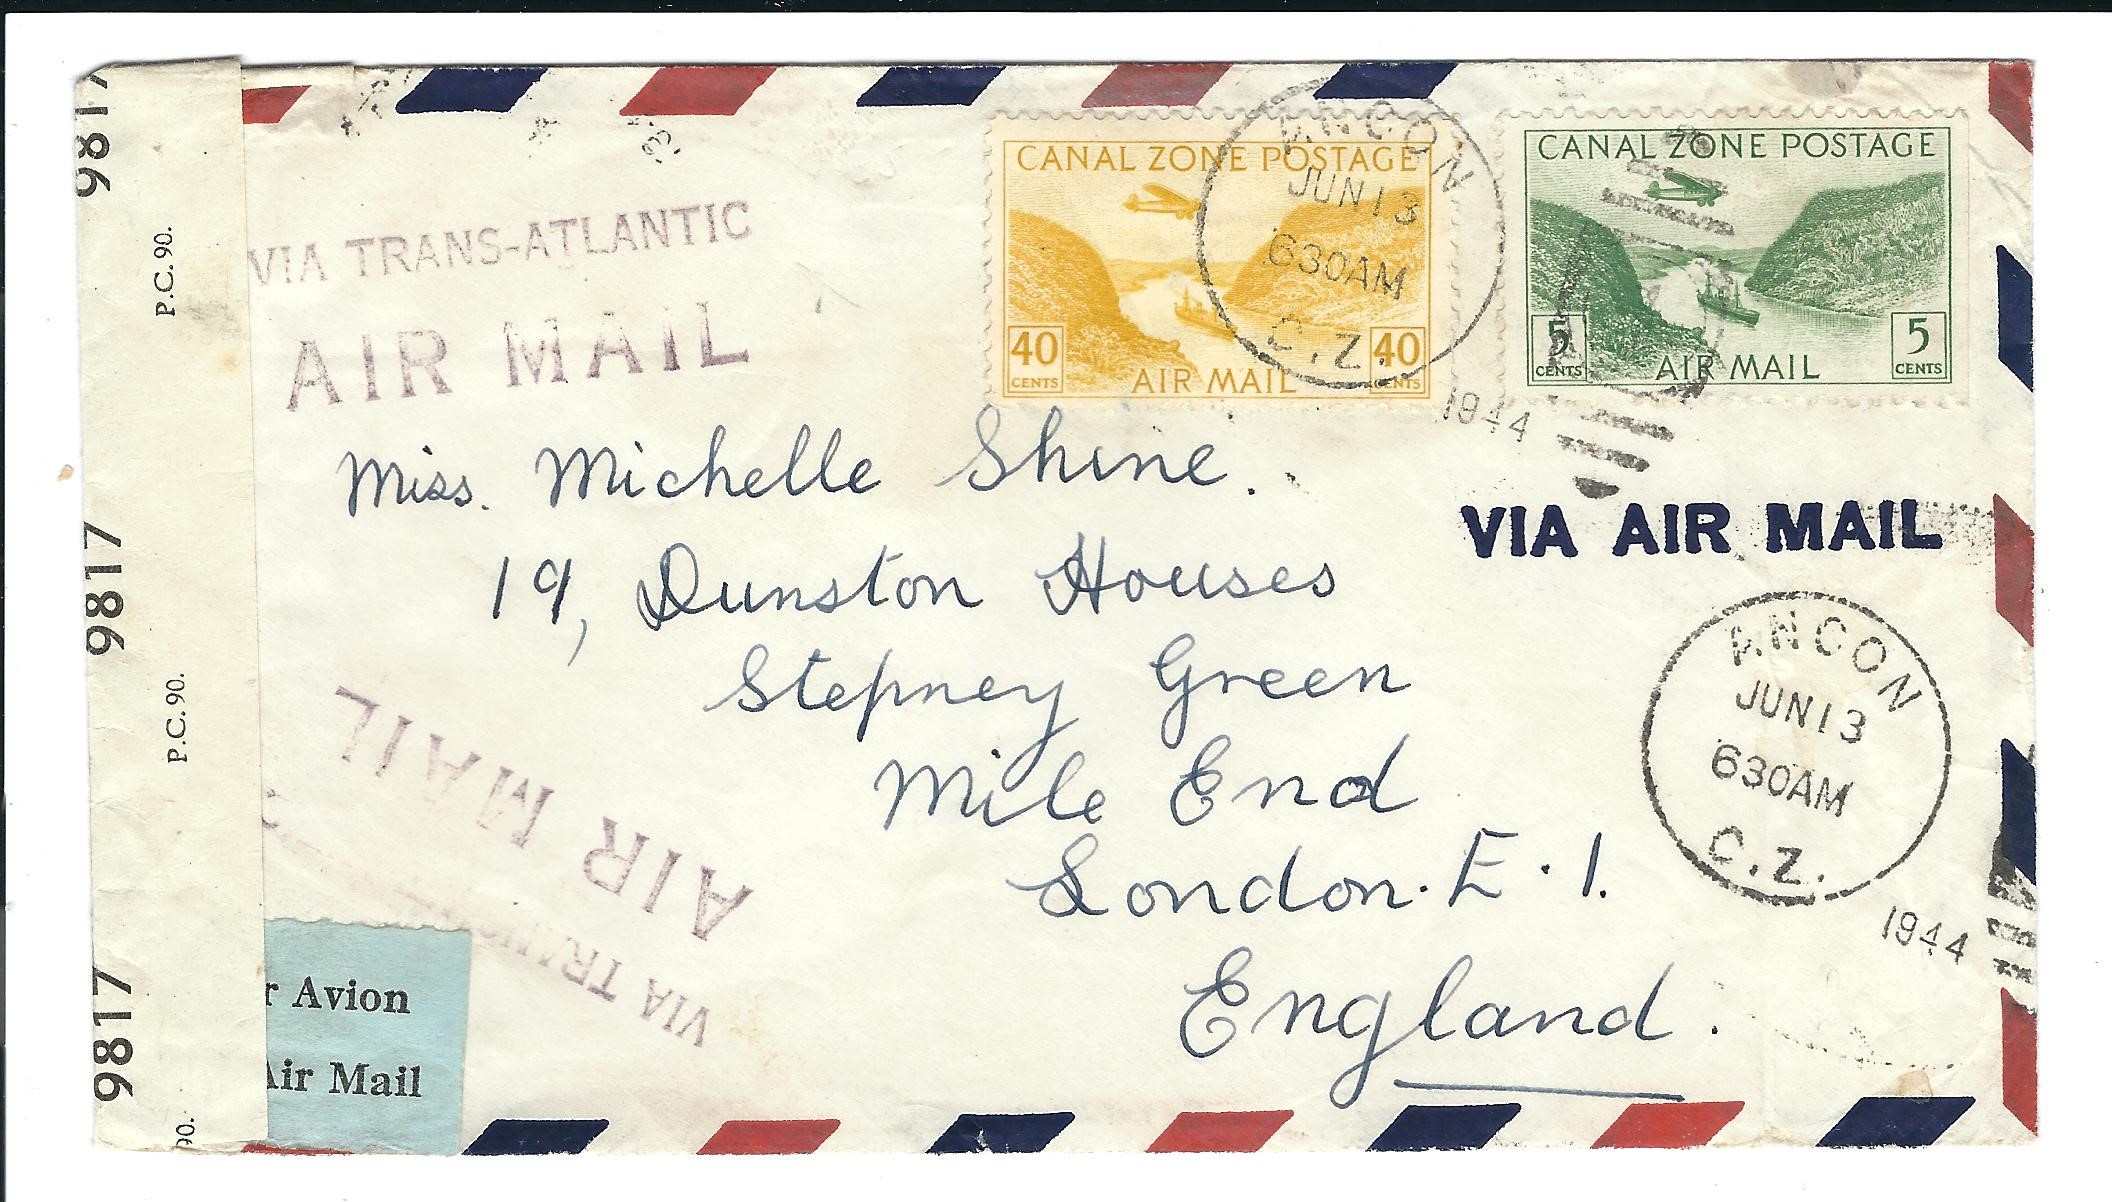 9817
P.C. 90.
9817
P.C. 90.
9817
90.
VIA TRANS-ATLANTIC
AIR MAIL
CANAL ZONE POSTAGE
40
CENTS
AIR MAIL
40
CENTS
ANCON
JUN 13
630AM
C.Z.
1944
CANAL ZONE POSTAGE
5
CENTS
AIR MAIL
5
CENTS
Miss. Michelle Shine.
19, Dunston Houses
Stepney Green
Mile End
London. E.1.
England.
VIA AIR MAIL
ANCON
JUN 13
630AM
C.Z.
1944
AIR MAIL
VIA TRANS
r Avion
Air Mail